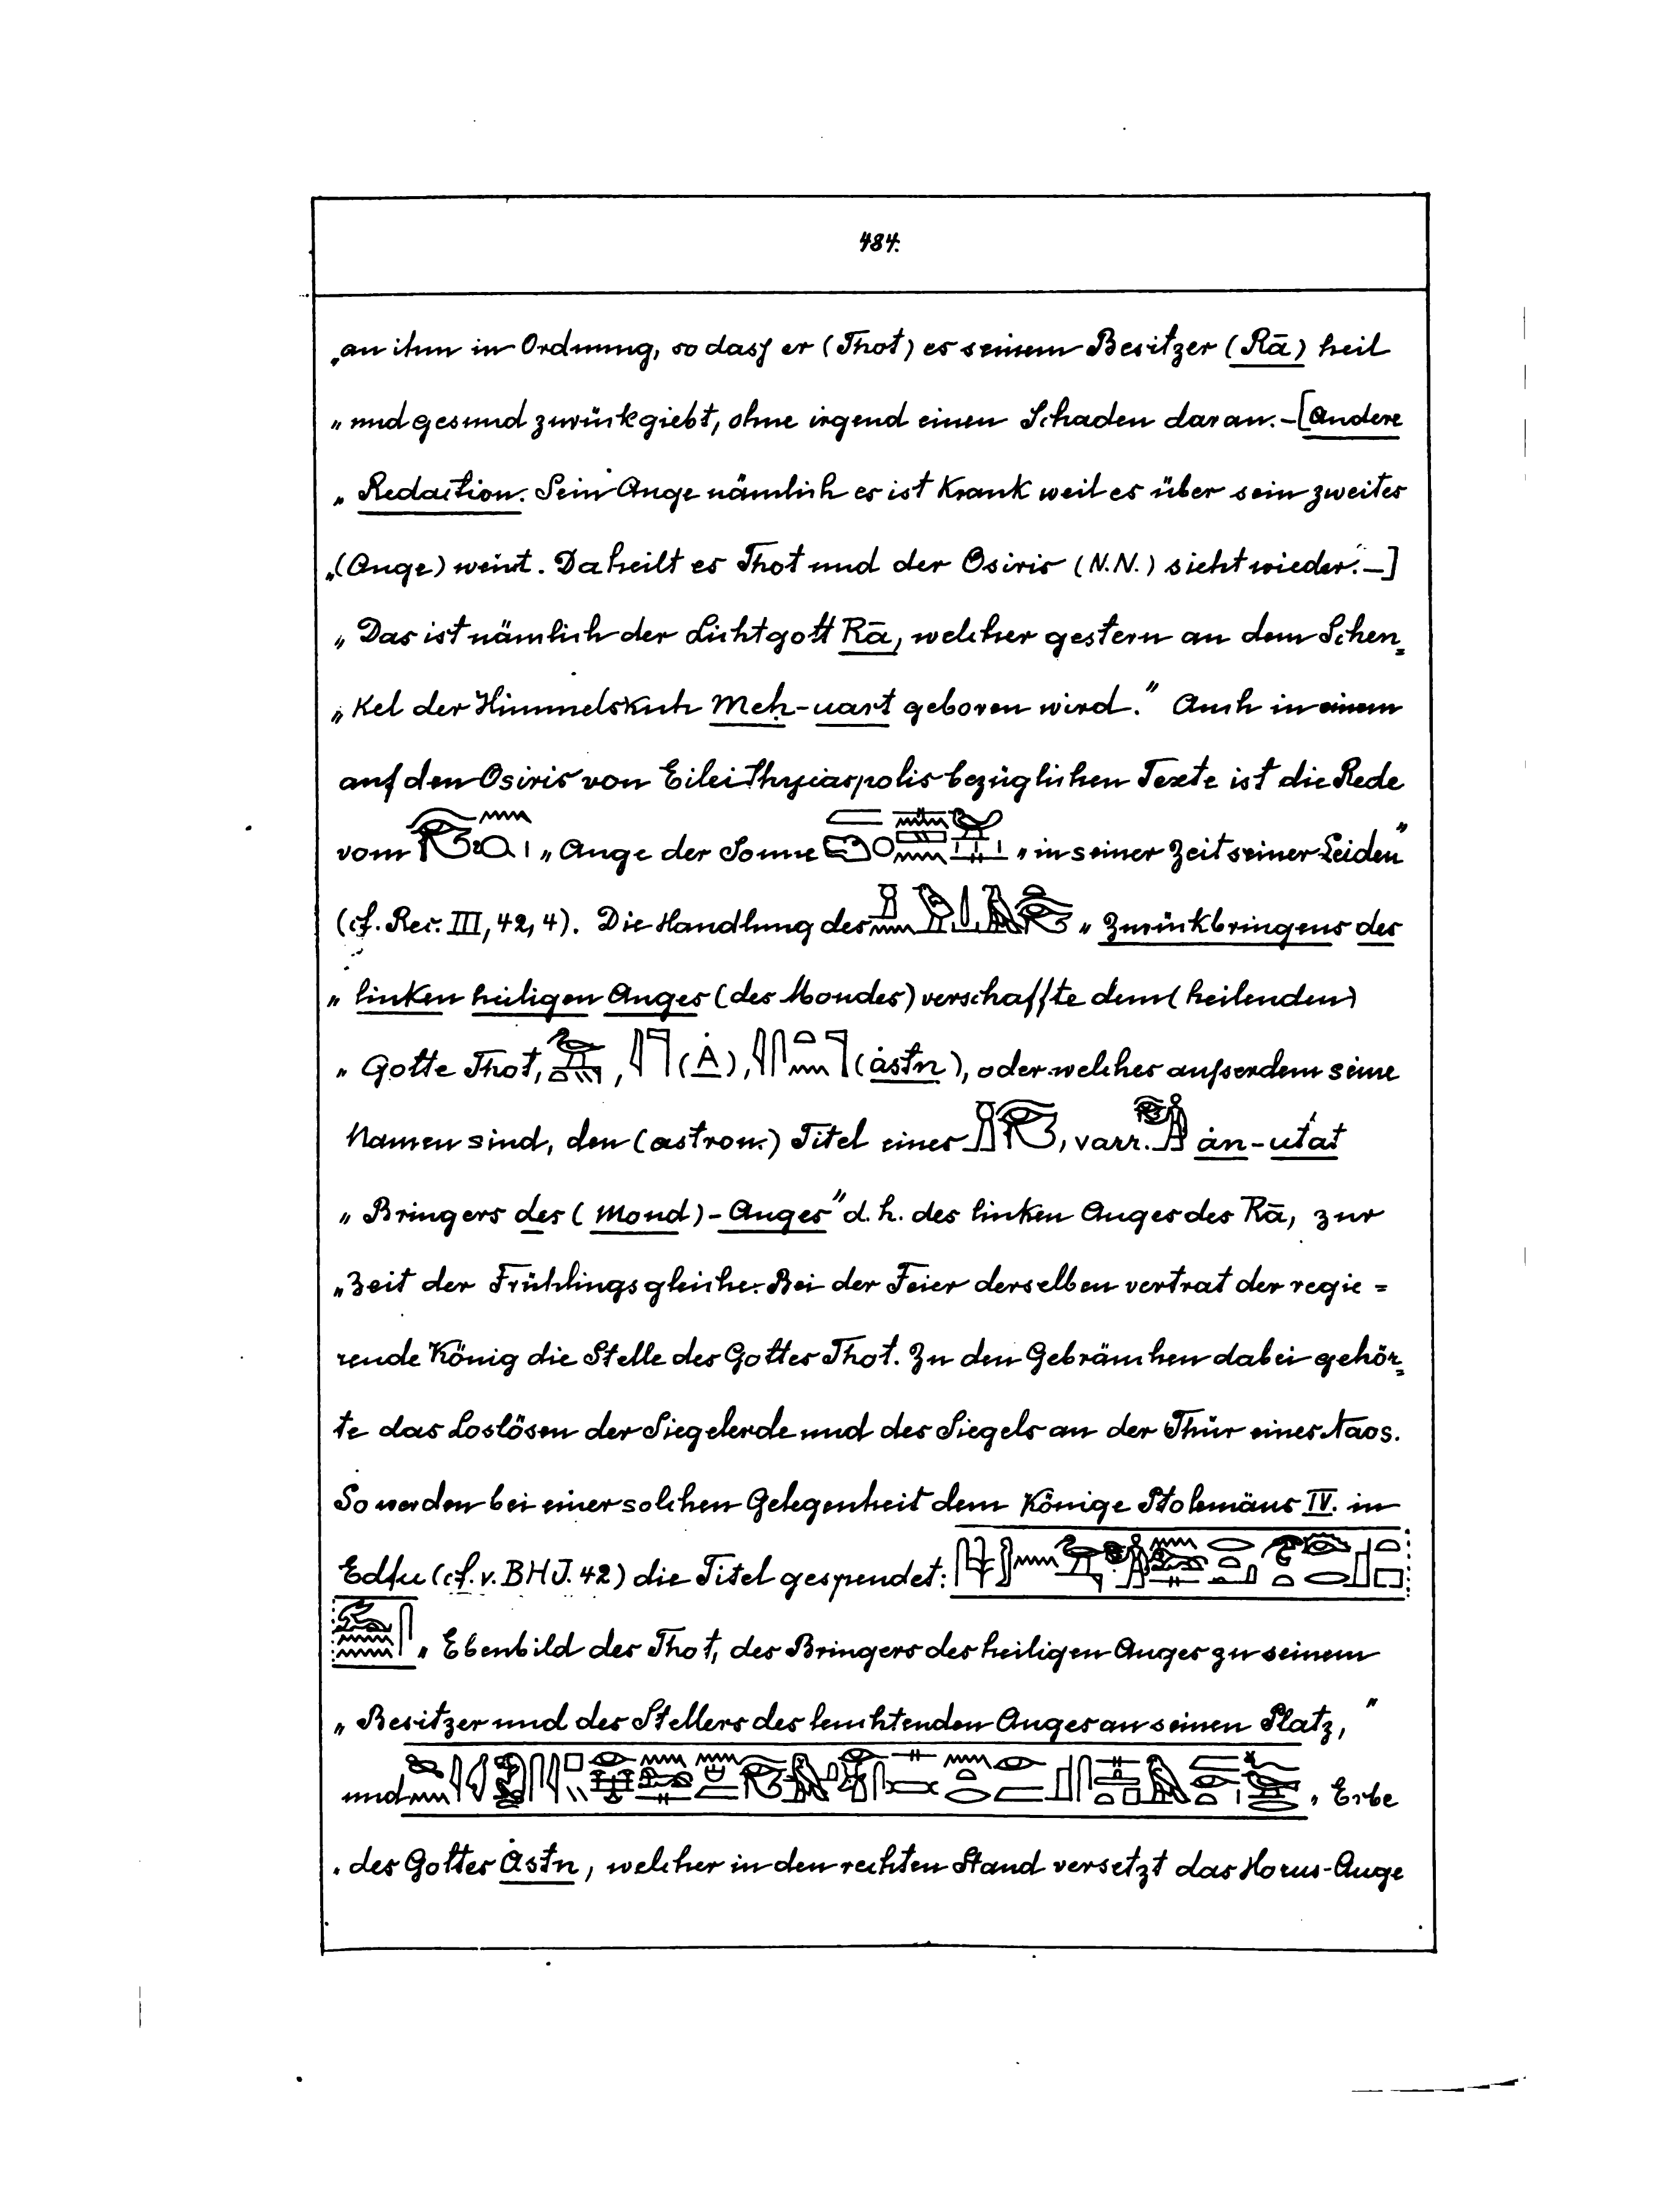 484.
„an ihm in Ordnung, so dass er (Thot) es seinem Besitzer (Rā) heil
„und gesund zurückgiebt, ohne irgend einen Schaden daran.–[Andere
„Redaction. Sein Auge nämlich es ist krank weil es über sein zweites
„(Auge) weint. Da heilt es Thot und der Osiris (N.N.) sieht wieder.–]
„Das ist nämlich der Lichtgott Rā, welcher gestern an dem Schen=
„kel der Himmelskuh Meḥ-uart geboren wird.“ Auch in einem
auf den Osiris von Eileithyiaspolis bezüglichen Texte ist die Rede
vom „Auge der Sonne „in seiner Zeit seiner Leiden“
(cf. Rec. III, 42, 4). Die Handlung des „Zurückbringens des
„linken heiligen Auges (des Mondes) verschaffte dem (heilenden)
„Gotte Thot, , (Ȧ), (ȧstn), oder welches ausserdem seine
Namen sind, den (astron.) Titel eines , varr. ȧn-ut́at
„Bringers des (Mond)-Auges“ d. h. des linken Auges des Rā, zur
„Zeit der Frühlingsgleiche. Bei der Feier derselben vertrat der regie=
rende König die Stelle des Gottes Thot. Zu den Gebräuchen dabei gehör=
te das Loslösen der Siegelerde und des Siegels an der Thür eines Naos.
So werden bei einer solchen Gelegenheit dem Könige Ptolemäus IV. in
Edfu (cf. v. BHJ. 42) die Titel gespendet:
„Ebenbild des Thot, des Bringers des heiligen Auges zu seinem
„Besitzer und des Stellers des leuchtenden Auges an seinen Platz,“
und „Erbe
„des Gottes Ȧstn, welcher in den rechten Stand versetzt das Horus-Auge